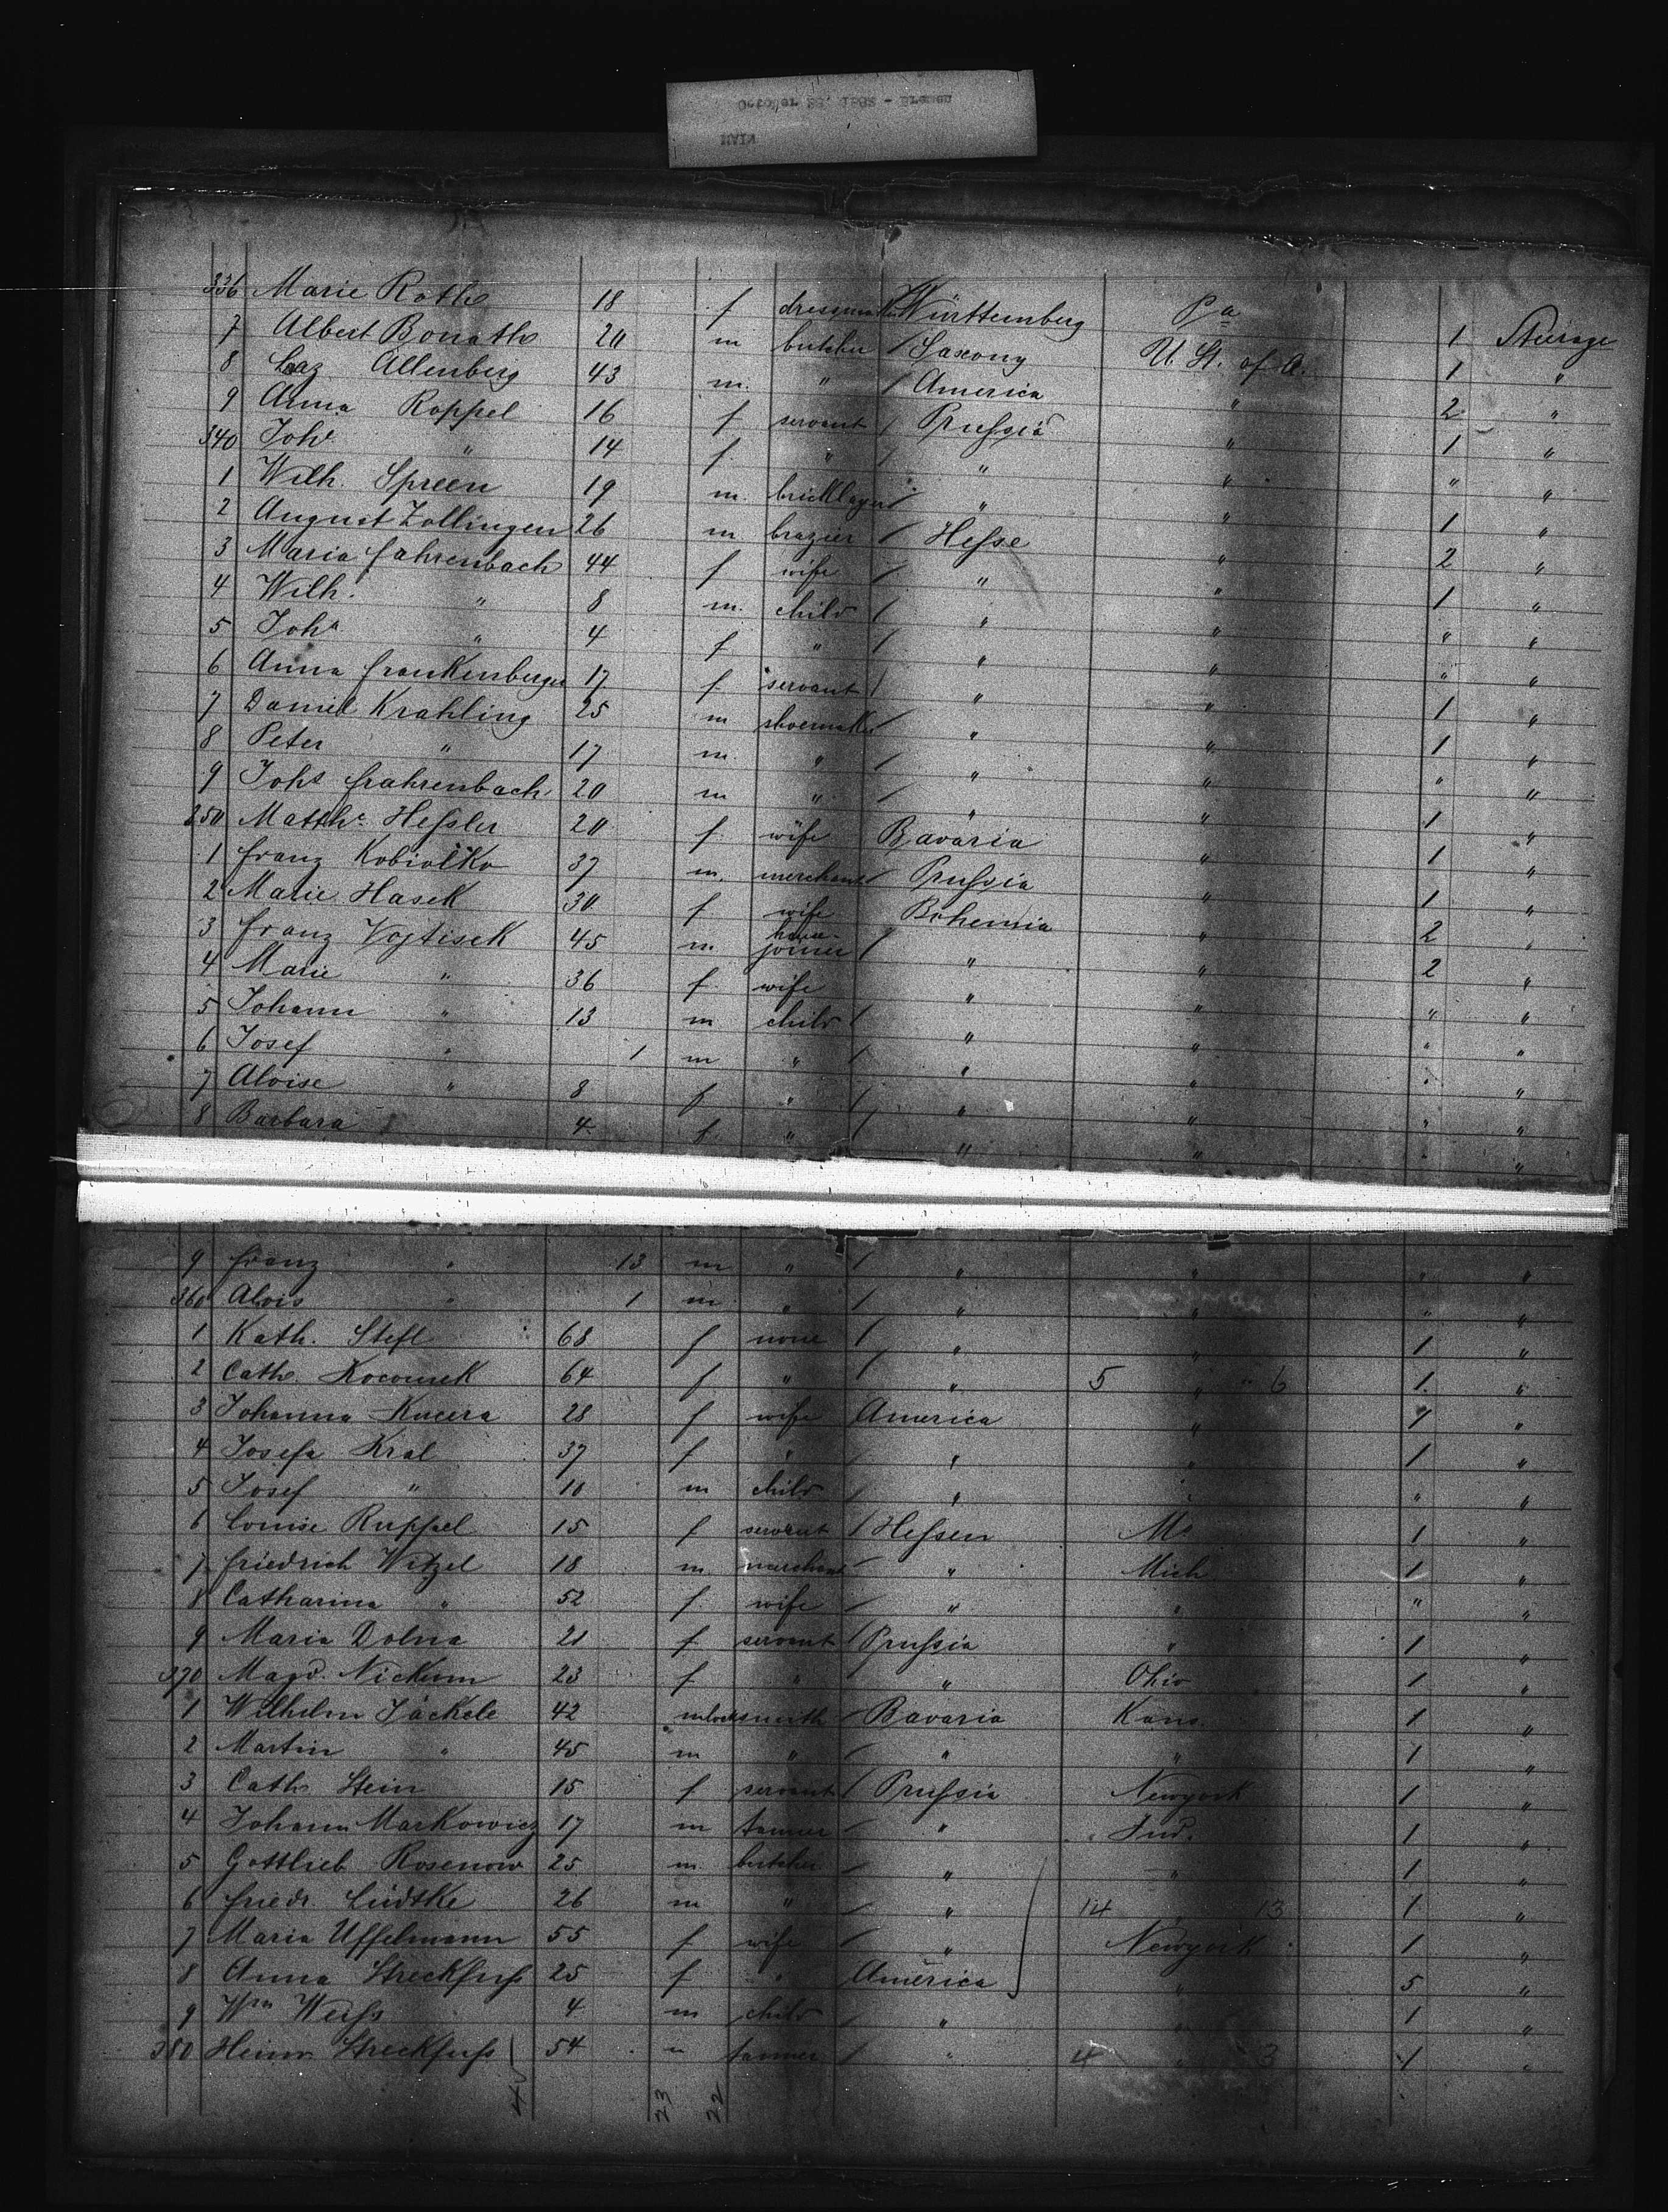 October 23, 1882 - Bremen
MAIN
336 Marie Roth 18 f dressmaker Württemberg Pa 1 Steerage
7 Albert Bonath 20 m butcher / Saxony U. St. of A. 1 "
8 Laz Allenberg 43 m. " / America " 2 "
9 Anna Roppel 16 f servant / Prussia " 1 "
340 Johe " 14 f. " / " " " "
1 Wilh. Spreen 19 m. bricklayer / " " 1 "
2 August Zollingen 26 m brazier / Hesse " 2 "
3 Maria Fahrenbach 44 f wife / " " 1 "
4 Wilh. " 8 m. child / " " " "
5 Joha " 4 f " / " " " "
6 Anna Frankenberger 17 f. servant / " " 1 "
7 Daniel Krahling 25 m shoemaker / " " 1 "
8 Peter " 17 m. " / " " " "
9 Johs Frahrenbach 20 m " / " " 1 "
350 Matthe Hessler 20 f. wife Bavaria " 1 "
1 Franz Kobiolko 37 m. merchant / Prussia " 1 "
2 Marie Hasek 30 f wife Bohemia " 2 "
3 Franz Vojtisek 45 m joiner / " " 2 "
4 Marie " 36 f. wife " " " "
5 Johann " 13 m child / " " " "
6 Josef " 1 m " / " " " "
7 Aloise " 8 f " / " " " "
8 Barbara 4 f. " / " " " "
9 Franz " 13 m " / " " " "
360 Alois " 1 m " / " " " "
1 Kath. Stefl 68 f none / " " 1 "
2 Cath. Kocourek 64 f " / " 5 " " 6 1. "
3 Johanna Kucera 28 f wife America " 7 "
4 Josefa Kral 37 f " / " " 1 "
5 Josef " 10 m child / " " " "
6 Louise Ruppel 15 f servant / Hessen Mo 1 "
7 Friedrich Witzel 18 m merchant / " Mich 1 "
8 Catharina " 52 f. wife / " " " "
9 Maria Dolna 21 f. servant / Prussia " 1 "
370 Magd. Nickum 23 f " / " Ohio 1 "
1 Wilhelm Jäckele 42 m locksmith / Bavaria Kans. 1 "
2 Martin " 45 m " / " " 1 "
3 Cath. Stein 15 f servant / Prussia Newyork 1 "
4 Johann Markowicz 17 m tanner / " Ind. 1 "
5 Gottlieb Rosenow 25 m. butcher / " " 1 "
6 Friedr. Lüdtke 26 m " / " 14 " 13 1 "
7 Maria Uffelmann 55 f wife / " Newyork 1 "
8 Anna Streckfuss 25 f " America " 5 "
9 Wm Weiss 4 m child / " " 1 "
380 Heinr. Streckfuss 54 m tanner / " 4 " 3 1 "
23 22